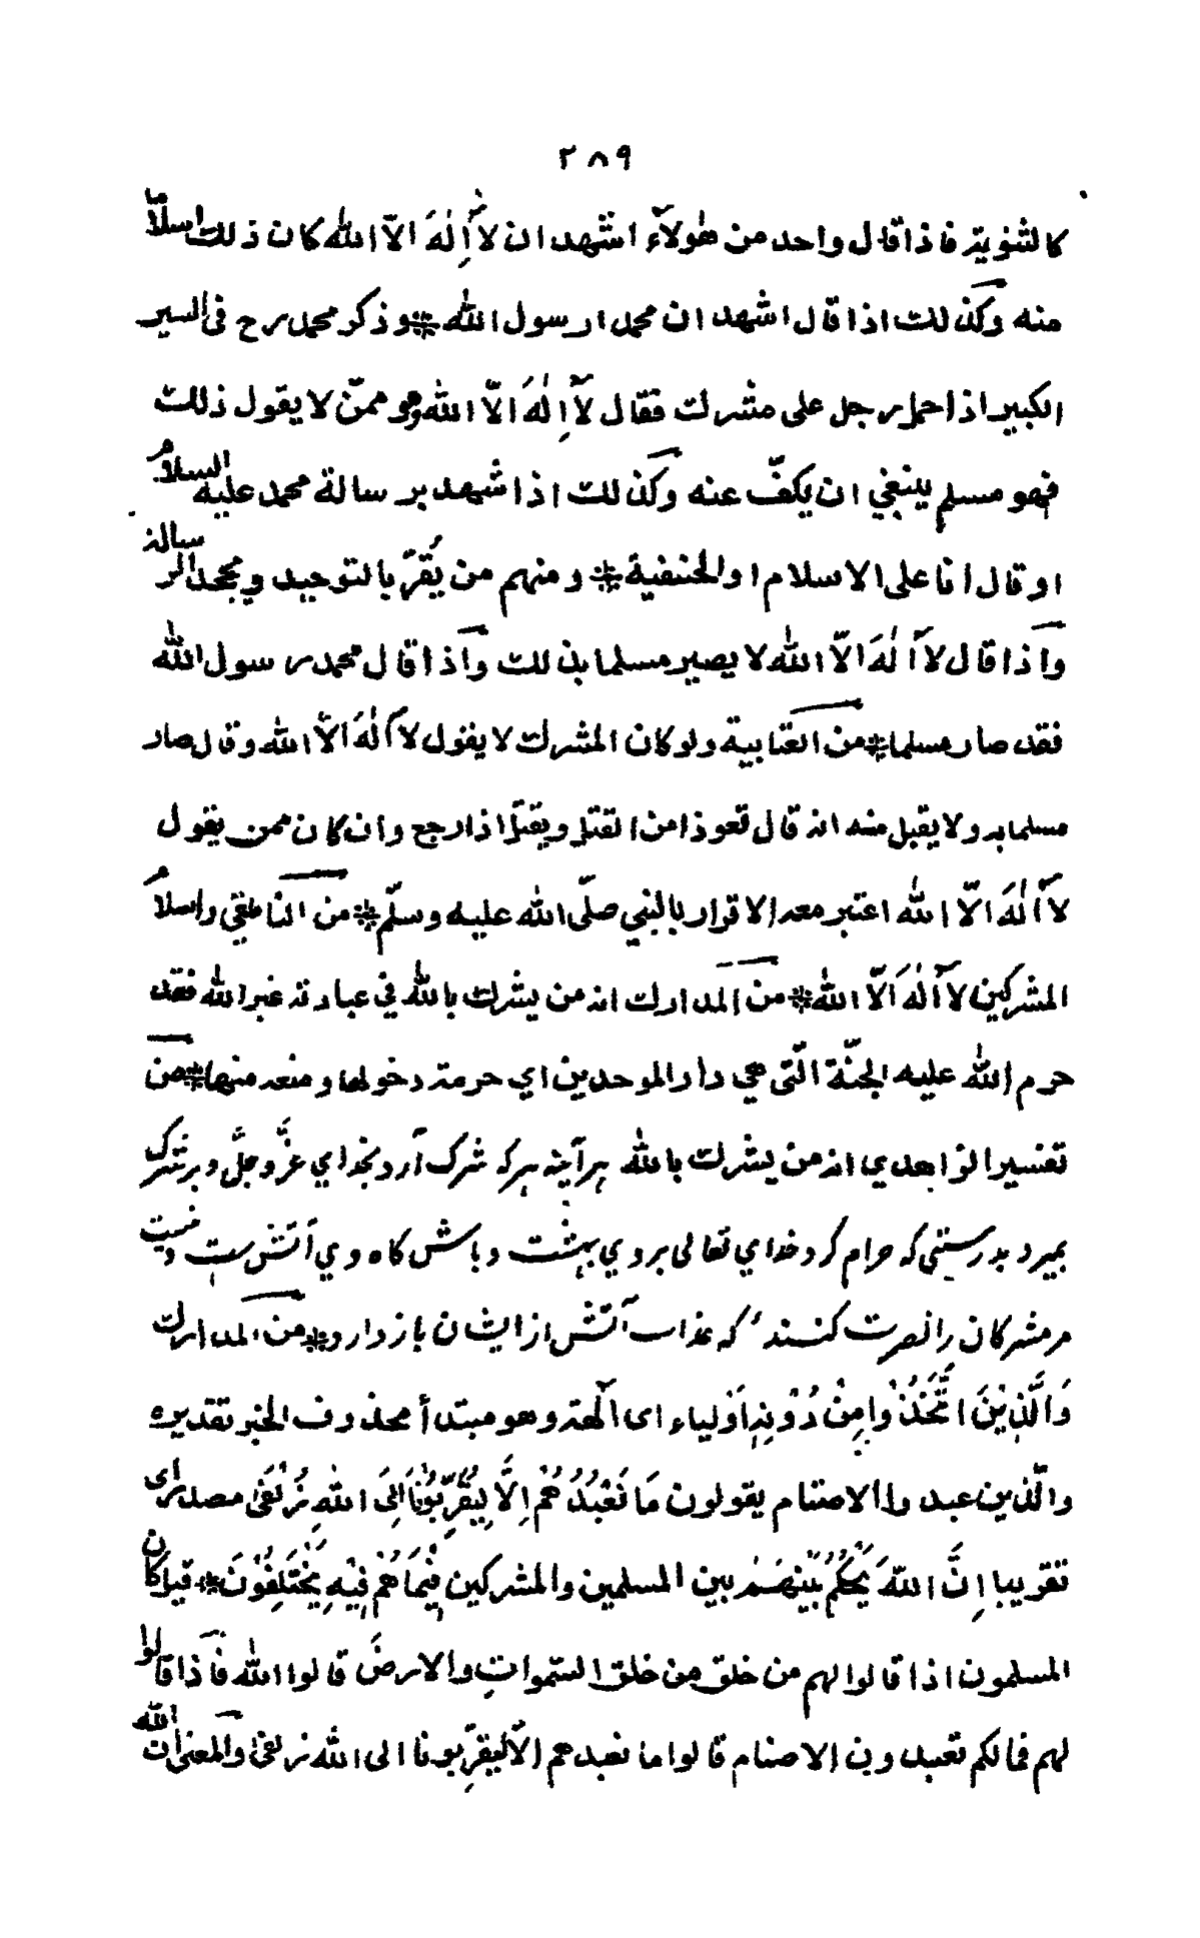 ٢٨٩
كالثنوية فاذا قال واحد من هٰولآء اشهد ان لآ اِلٰهَ الّا الله كان ذلك اسلامًا
منه وكذلك اذا قال اشهد ان محمدا رسول الله * وذكر محمد رح فى السير
الكبير اذا حمل رجل على مشرك فقال لآ اِلٰهَ الّا الله وهو ممّن لا يقول ذلك
فهو مسلم ينبغي ان يكفّ عنه وكذلك اذا شهد برسالة محمد عليه السلام
او قال انا على الاسلام او الحنفية * ومنهم من يُقرّ بالتوحيد ويجحد الرسالة
واذا قال لآ الٰهَ الّا الله لا يصير مسلما بذلك واذا قال محمد رسول الله
فقد صار مسلما * من العتابية ولو كان المشرك لا يقول لآ الٰهَ الّا الله وقال صار
مسلما به ولا يقبل منه انه قال تعوذا من القتل ويقتل اذا رجع وان كان ممن يقول
لآ الٰهَ الّا الله اعتبر معه الاقرار بالنبي صلّى الله عليه وسلّم * من الناطقي واسلام
المشركين لآ الٰهَ الّا الله * من المدارك انه من يشرك بالله في عبادته غير الله فقد
حرم الله عليه الجنّة الّتى هي دار الموحدين اي حرمته دخولها ومنعه منها * من
تفسير الزاهدي انه من يشرك بالله هرآينه هركه شرك آرد بخداي عزّ وجلّ وبر شرك
بميرد بدرستي كه حرام كرد خداي تعالى بروي بهشت وباش كاه وي آتش ست ونيست
مر مشركان را نصرت كنند كه عذاب آتش از ايشان باز دارد * من المدارك
وَالَّذِيْنَ اتَّخَذُوْا مِنْ دُوْنِهٖ اَوْلياء اى آلهة وهو مبتدأ محذوف الخبر تقديره
والّذين عبدوا الاصنام يقولون مَا نَعْبُدُهُمْ اِلَّا لِيُقَرِّبُوْنَا اِلَى اللهِ زُلْفٰى مصدر اى
تقريبا اِنَّ اللهَ يَحْكُمُ بَيْنَهُمْ بين المسلمين والمشركين فِيْمَا هُمْ فِيْهِ يَخْتَلِفُوْنَ * قيل كان
المسلمون اذا قالوا لهم من خلق من خلق السّموات والارض قالوا الله فاذا قالوا
لهم فما لكم تعبدون الاصنام قالوا ما نعبدهم الّا ليقرّبونا الى الله زلفى والمعنى ان الله